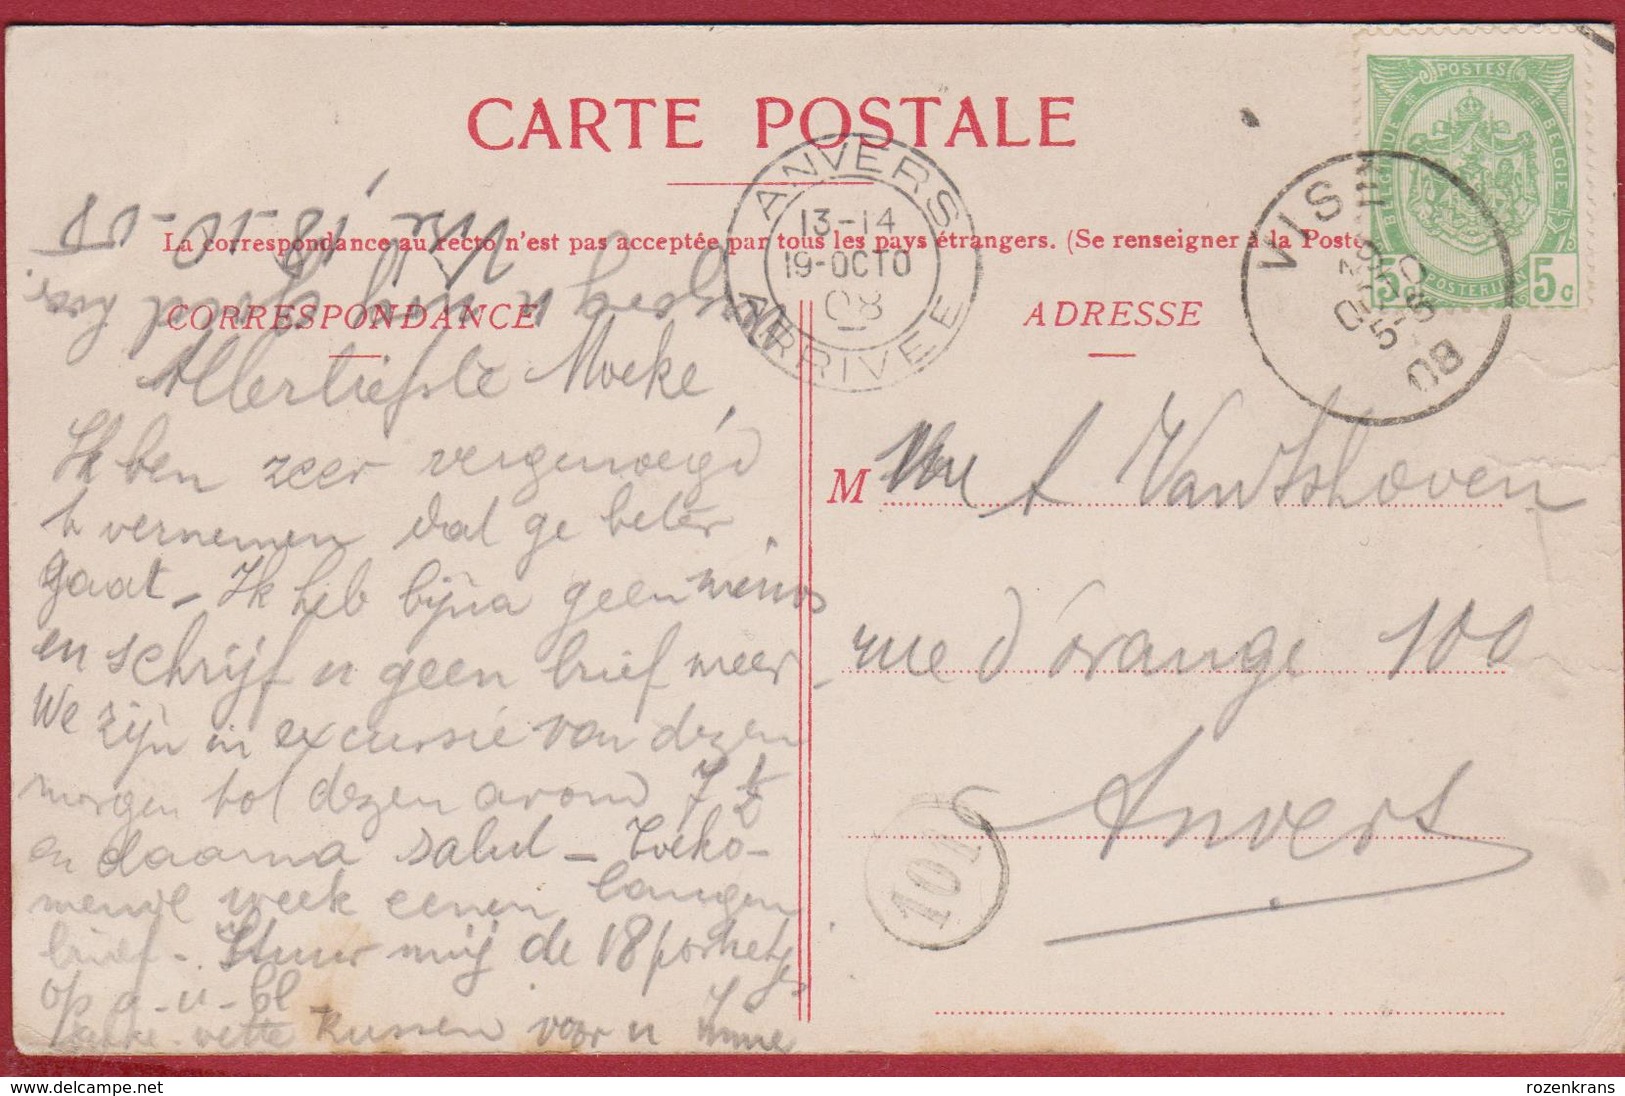 POSTES
BELGIQUE
BELGIE
POSTERIJEN
5c
5c
CARTE POSTALE
ANVERS
13-14
19-OCTO
08
ARRIVEE
VISÉ
08
Visé 18-10-08
La correspondance au recto n'est pas acceptée par tous les pays étrangers. (Se renseigner à la Poste
zorg u maar goed hoor.
CORRESPONDANCE
ADRESSE
Allerliefste Moeke,
Ik ben zeer vergenoegd
te vernemen dat ge beter
gaat - Ik heb bijna geen
en schrijf u geen brief meer.
We zijn in excursie van dezen
morgen tot dezen avond 7 1/2
en daarna salut - Toeko-
mende week eenen langen
brief - Stuur mij de 18
op a-u-bl
vette kussen voor u
M
Vanishoven
rue d'orange 100
Anvers
101
rozenkrans